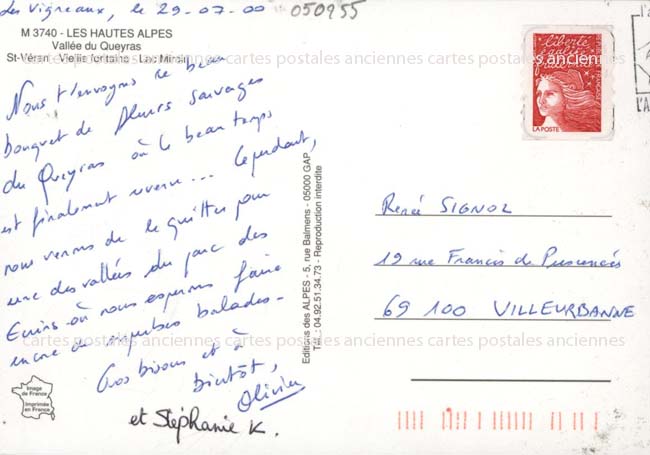 Les Vigneaux, le 29-07-00
050955
M 3740 - LES HAUTES ALPES
Vallée du Queyras
St-Véran - Vieille fontaine - Lac Miroir
Nous t'envoyons ce beau
bouquet de fleurs sauvages
du Queyras où le beau temps
est finalement revenu... Cependant,
nous venons de le quitter pour
une des vallées du parc des
Ecrins où nous espérons faire
encore de superbes balades.
Gros bisous et à
bientôt,
Olivier
et Stéphanie K.
Image
de France
Imprimée
en France
Editions des ALPES - 5, rue Balmens - 05000 GAP
Tél. : 04.92.51.34.73 - Reproduction interdite
liberté
égalité
fraternité
LA POSTE
René SIGNOL
19 rue Francis de Pressensé
69 100 VILLEURBANNE
cartes postales anciennes cartes postales anciennes cartes postales anciennes